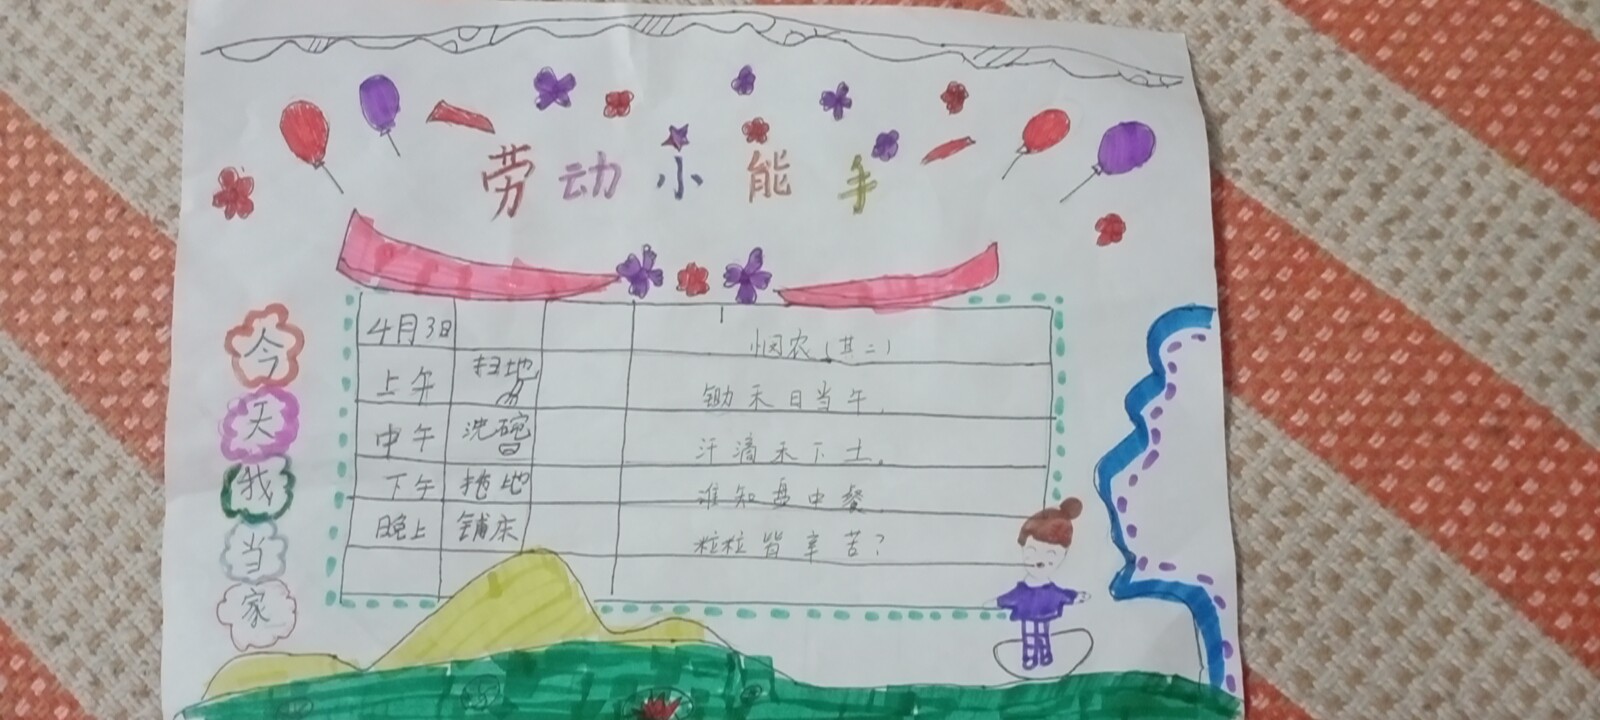 劳动小能手
今天我当家
4月3日
上午 扫地
中午 洗碗
下午 拖地
晚上 铺床
悯农(其二)
锄禾日当午,
汗滴禾下土。
谁知盘中餐
粒粒皆辛苦?